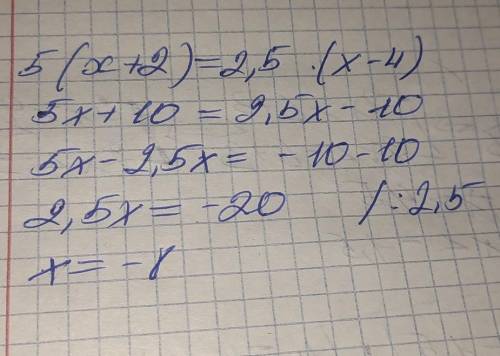 5(x+2)=2,5 ·(x-4)
5x+10=2,5x-10
5x-2,5x= -10-10
2,5x= -20 /:2,5
x= -8